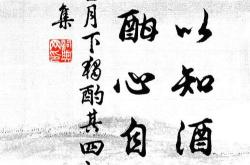 以知酒
酣心自
月下獨酌其四
集